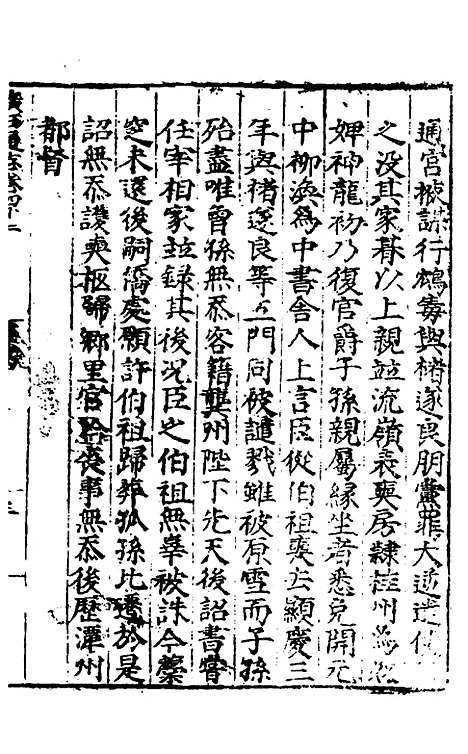 通宫掖謀行鴆毒與褚遂良朋黨罪大逆遣使
之没其家朞以上親並流嶺表奭房隷桂州爲奴
婢神龍初乃復官爵子孫親屬縁坐者悉免開元
中柳渙爲中書舎人上言臣從伯祖奭去顯慶三
年與褚遂良等五門同被譴戮雖被原雪而子孫
殆盡唯曾孫無忝客籍龔州陛下先天後詔書嘗
任宰相家並録其後况臣之伯祖無辜被誅今藁
窆未還後嗣僑處願許伯祖歸葬孤孫北遷於是
詔無忝護奭柩歸郷里官給喪事無忝後歷潭州
都督